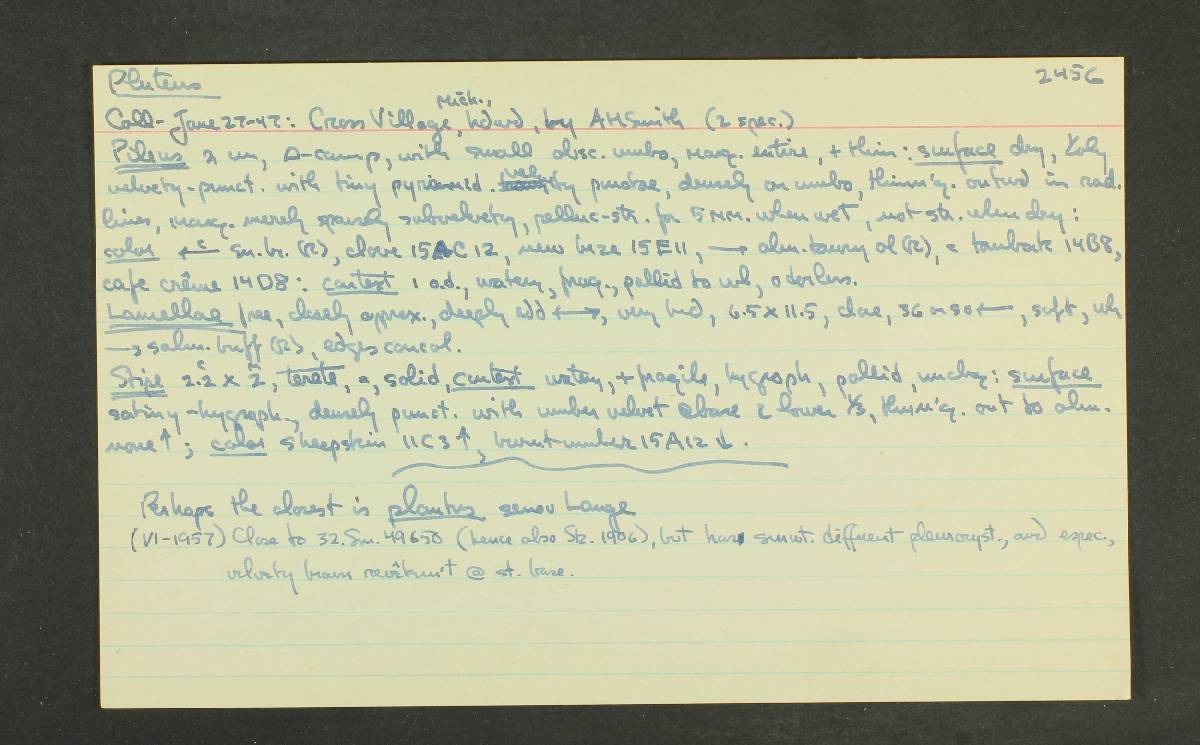 Pluteus 2456
Coll- June 27-47: Cross Village, Mich., hdwd, by AHSmith (2 spec.)
Pileus 2 cm, with small obsc. umbo, marg. entire, + thin: surface dry,
velvety-punct. with tiny pyramid. velvety purose, densely on umbo, thinn'g. outwd in rad.
lines, marg. merely sparsely subvelvety, pelluc-str. for 5 MM. when wet, not str. when dry:
color ← c sn. br. (R), clove 15AC12, new bure 15E11, → olm. tawny ol (R), c tanbark 14B8,
cafe crême 14D8: context 1 o.d., watery, frag., pallid to wh, odorless.
Lamellae free, closely approx., deeply add ←→, very brd, 6.5 x 11.5, close, 36 or so ←, soft, wh
→ salm. buff (R), edges concol.
Stipe 2.2 x 2, terete, =, solid, context watery, + fragile, hygroph, pallid, unchg: surface
satiny-hygroph., densely punct. with umber velvet @ base & lower 1/3, thinn'g. out to alm.
none ↑; color sheepskin 11C3 ↑, burnt umber 15A12 ↓.
Perhaps the closest is plautus sensu Lange
(VI-1957) Close to 32. Sm. 49650 (hence also Stz. 1906), but has smwt. different pleurocyst., and espec.,
velvety brown revêtem't @ st. base.